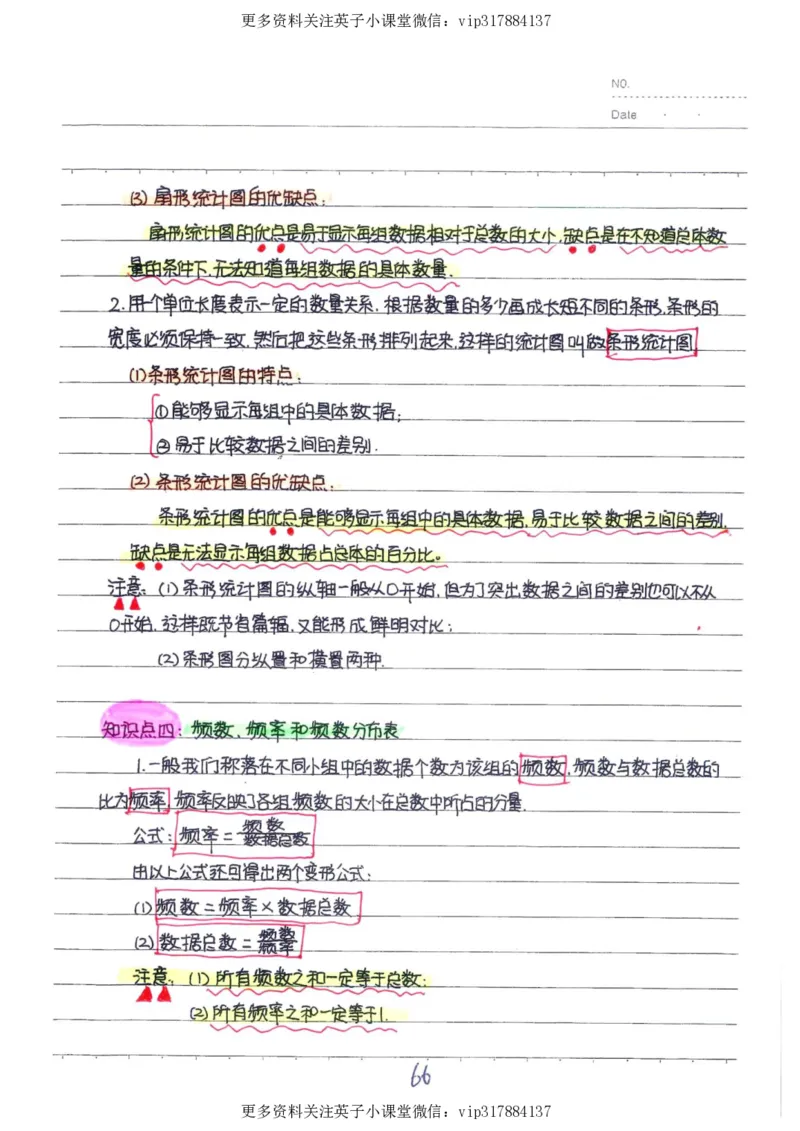 更多资料关注英子小课堂微信：vip317884137
NO.
Date
(3) 扇形统计图的优缺点:
扇形统计图的优点是易于显示每组数据相对于总数的大小,缺点是在不知道总体数
量的条件下,无法知道每组数据的具体数量.
2.用个单位长度表示一定的数量关系,根据数量的多少画成长短不同的条形,条形的
宽度必须保持一致,然后把这些条形排列起来,这样的统计图叫做条形统计图.
(1)条形统计图的特点:
①能够显示每组中的具体数据;
②易于比较数据之间的差别.
(2) 条形统计图的优缺点.
条形统计图的优点是能够显示每组中的具体数据,易于比较数据之间的差别,
缺点是无法显示每组数据占总体的百分比。
注意: (1)条形统计图的纵轴一般从0开始,但为了突出数据之间的差别也可以不从
0开始,这样既节省篇幅,又能形成鲜明对比;
(2)条形图分纵置和横置两种.
知识点四: 频数、频率和频数分布表
1.一般我们称落在不同小组中的数据个数为该组的频数,频数与数据总数的
比为频率.频率反映了各组频数的大小在总数中所占的分量.
公式: 频率=频数/数据总数
由以上公式还可得出两个变形公式:
(1)频数=频率×数据总数
(2)数据总数=频数/频率
注意: (1)所有频数之和一定等于总数;
(2)所有频率之和一定等于1.
66
更多资料关注英子小课堂微信：vip317884137